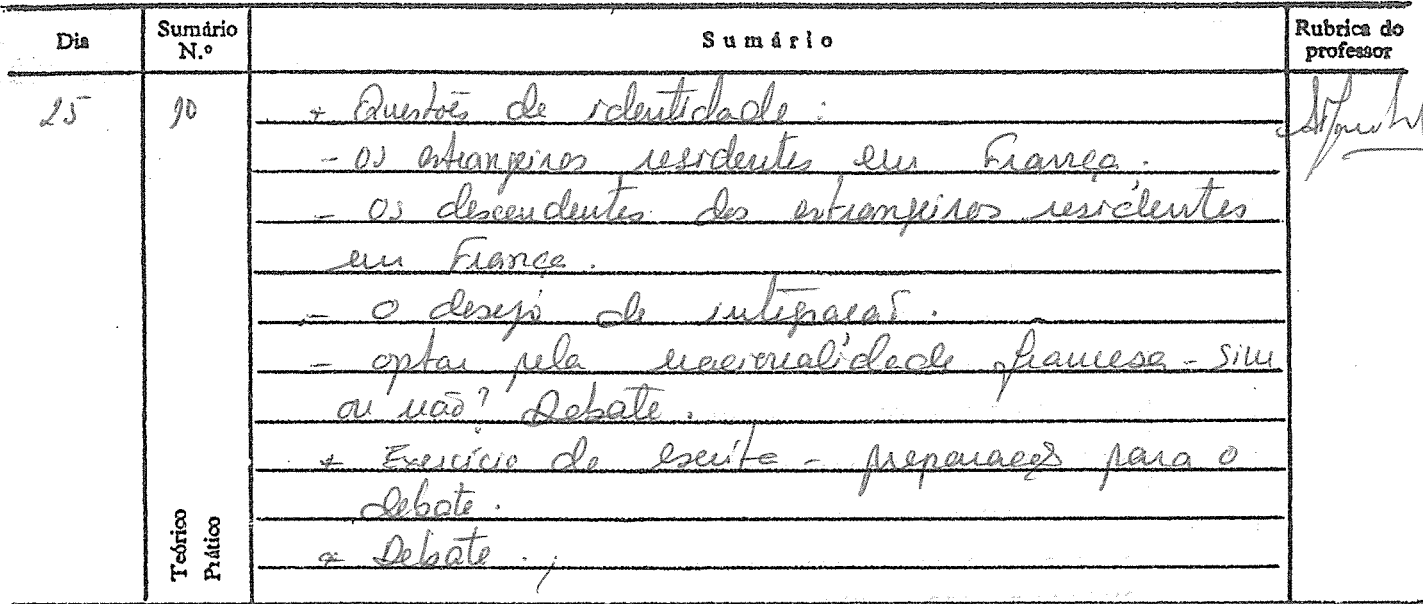 Dia Sumário N.º Sumário Rubrica do professor
25 90 * Questões de identidade :
- os estrangeiros residentes em França.
- os descendentes dos estrangeiros residentes
em França.
- o desejo de integração.
- optar pela nacionalidade francesa - sim
ou não? Debate.
* Exercício de escrita - preparação para o
debate.
* Debate.
Teórico
Prático